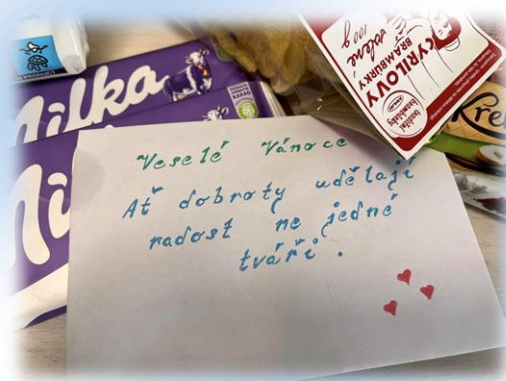 Milka
Mi
CYRILOVY
BRAMBŮRKY
solené 100 g
Kře
Veselé Vánoce
Ať dobroty udělají
radost ne jedné
tváři.